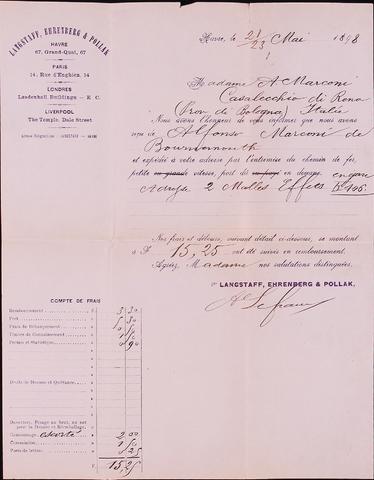 LANGSTAFF, EHRENBERG & POLLAK,
HAVRE
67, Grand-Quai, 67
PARIS
14, Rue d'Enghien, 14
LONDRES
Leadenhall Buildings — E. C.
LIVERPOOL
The Temple, Dale Street
Havre, le 21/23 Mai 1898
Madame A Marconi
Casalecchio di Reno
(Prov. de Bologna) Italie
Nous avons l'honneur de vous informer que nous avons
reçu de Alfonso Marconi de
Bournemouth
et expédié à votre adresse par l'entremise du chemin de fer,
petite ou grande vitesse, port dû ou payé en douane, en gare
2 Malles Effets
Nos frais et débours, suivant détail ci-dessous, se montant
à F. 15,25 ont été suivis en remboursement.
Agréez, Madame nos salutations distinguées.
Pr LANGSTAFF, EHRENBERG & POLLAK,
COMPTE DE FRAIS
Remboursement F. 3 30
Port
Frais de Débarquement
Timbre de Connaissement
Permis et Statistique
Droits de Douane et Quittance
Ouverture, Pesage au brut, au net
pour la Douane et Réemballage
Camionnage 2 00
Commission
Ports de lettres 25
F. 15 25